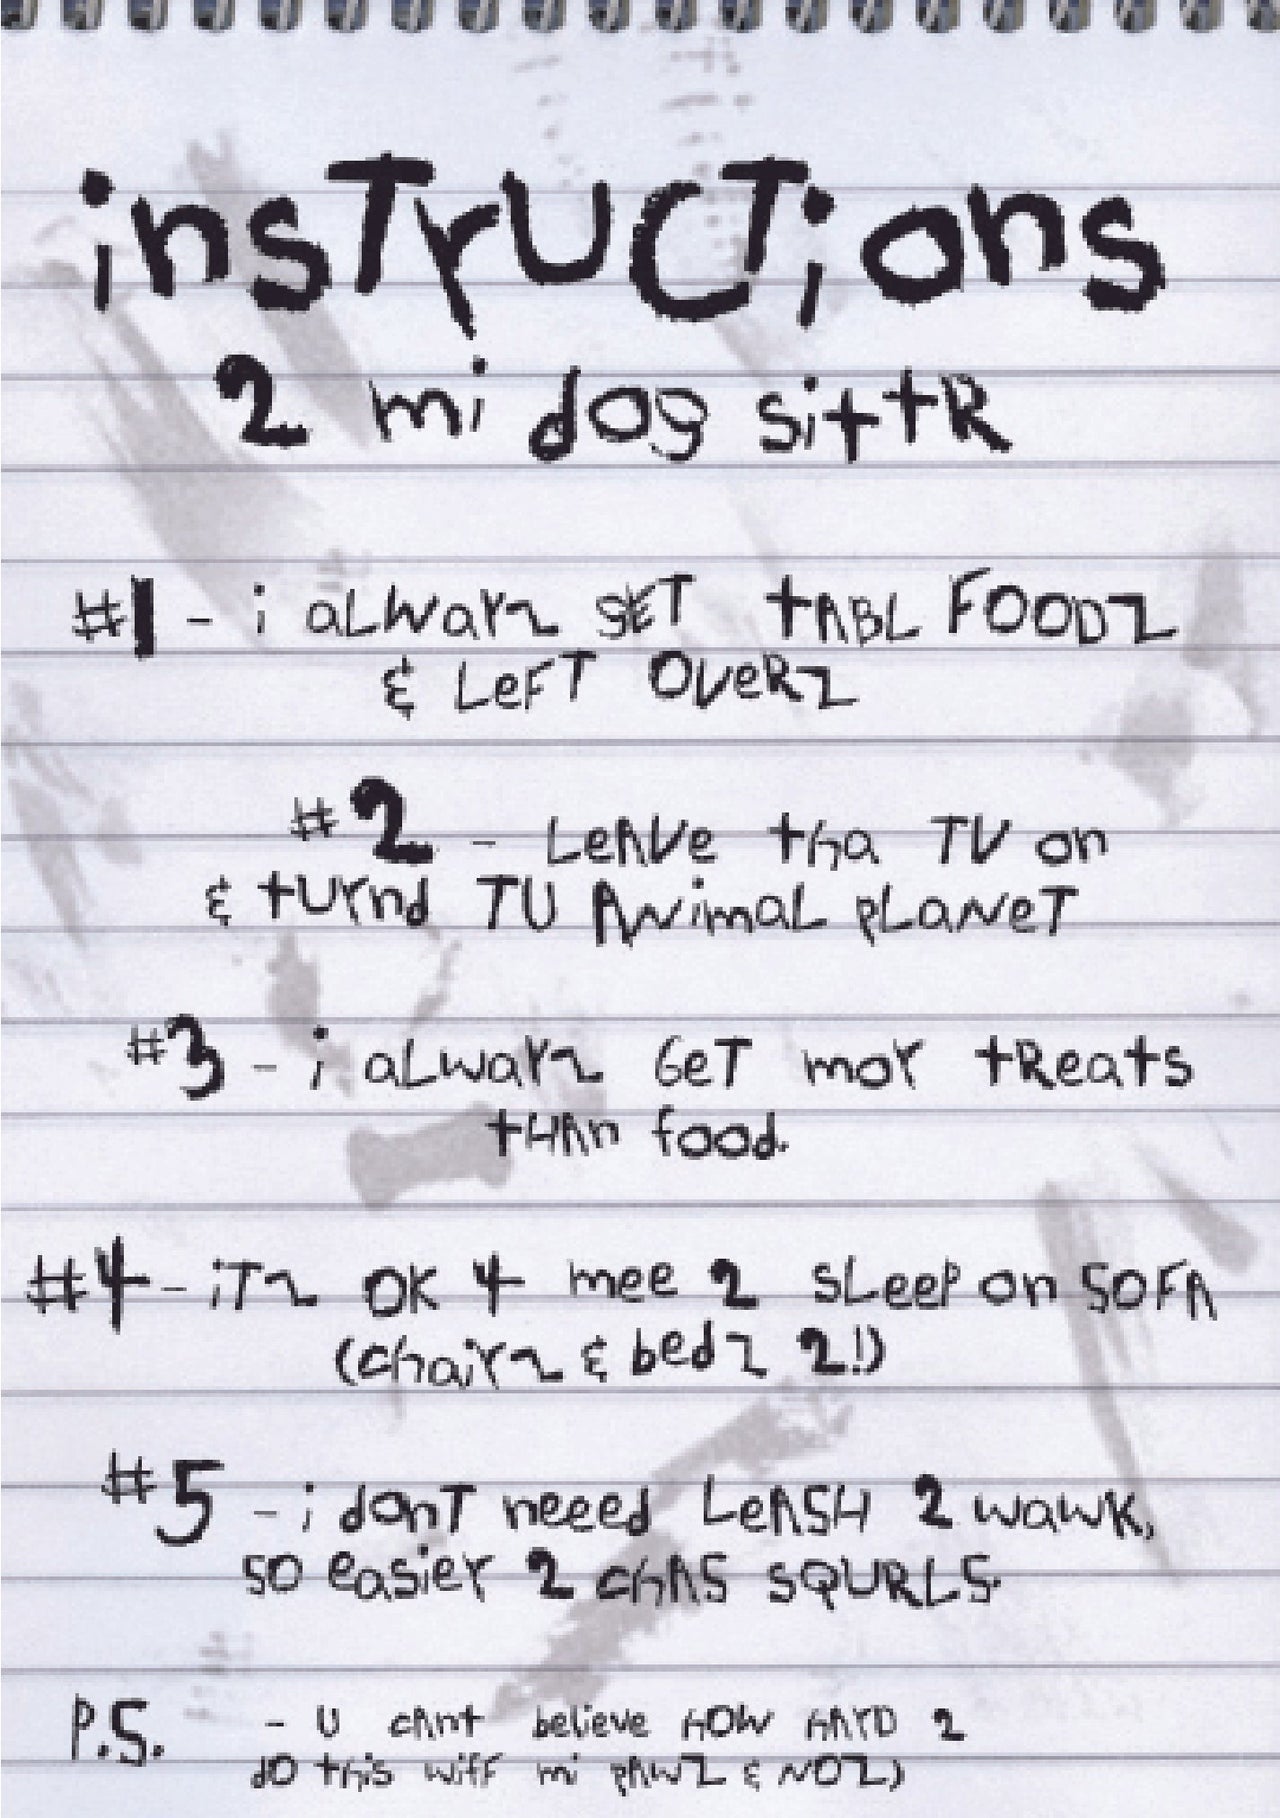 insTrUCTions
2 mi dog sittR
#1 - i aLWaYz gET tABL FOODZ
& LeFT OVeRZ
#2 - LeAVe tha TV on
& tUrnd TU ANimaL pLaNeT
#3 - i aLwaYz GeT moY tReats
tHAn food.
#4 - iTz OK 4 mee 2 sLeeP on SOFA
(chairz & bedz 2!)
#5 - i donT neeed LeASH 2 wawk,
so easier 2 chAS sQURLS.
P.S. - U cAnt believe HOW HArD 2
dO this wiff mi pAWZ & NOZ)